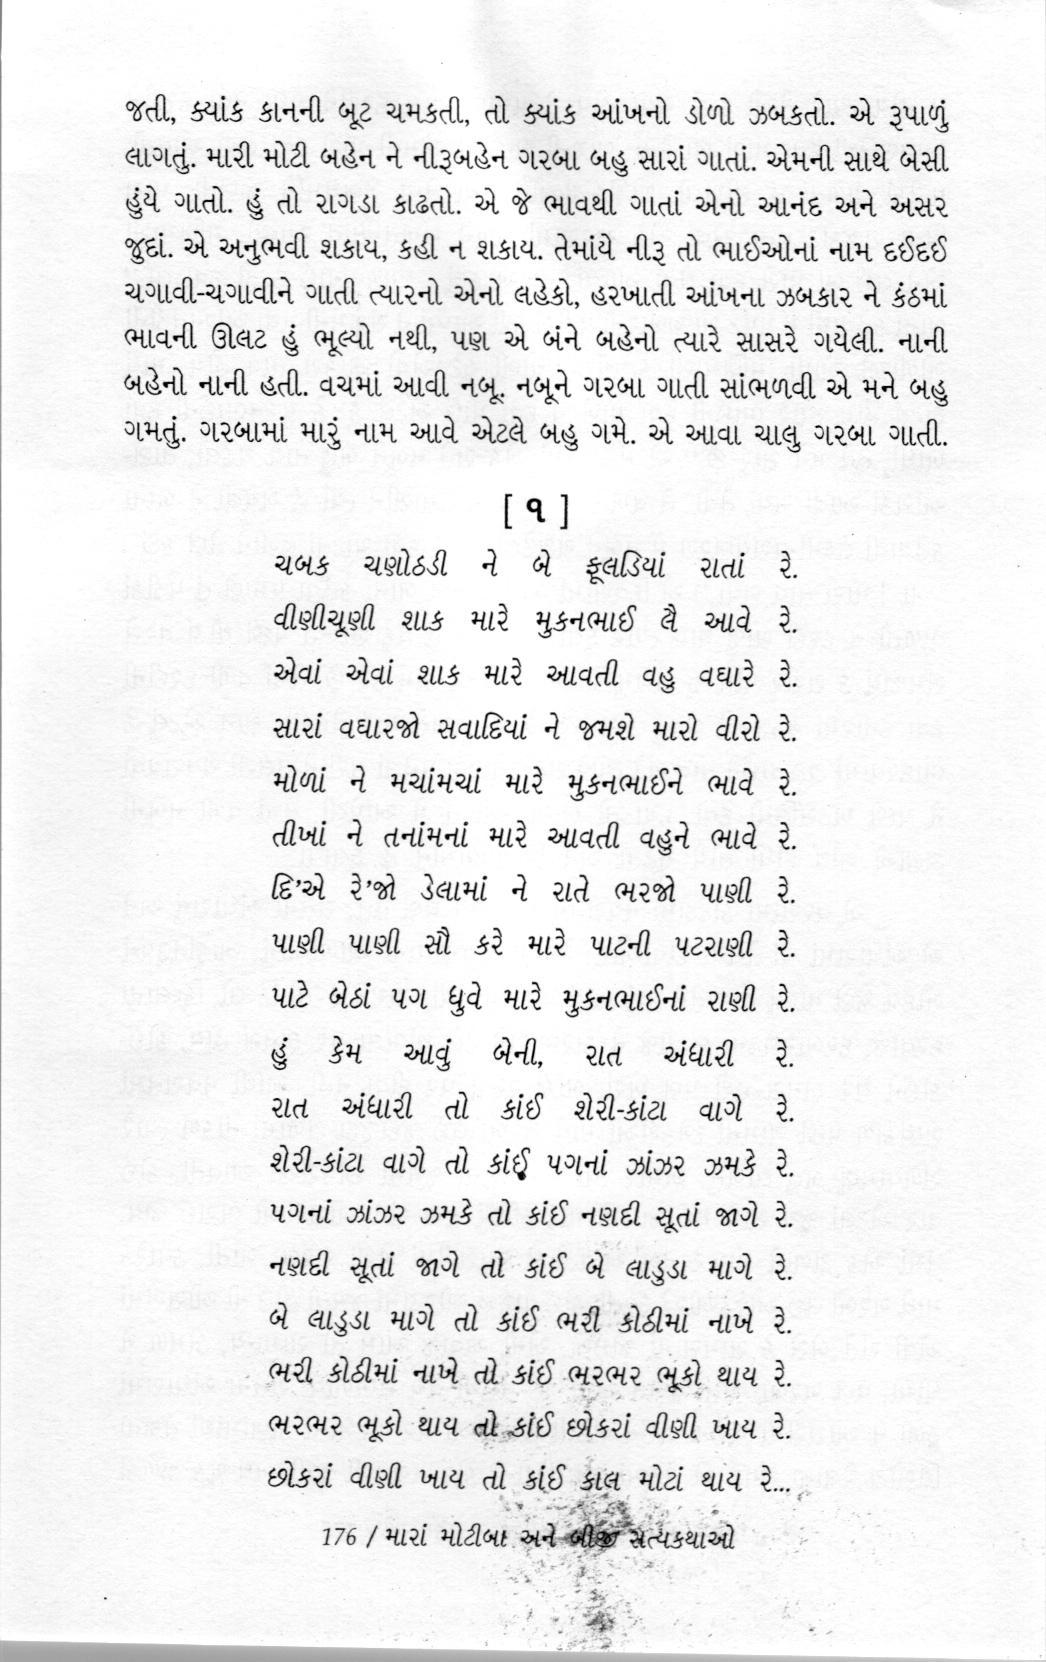 જતી, ક્યાંક કાનની બૂટ ચમકતી, તો ક્યાંક આંખનો ડોળો ઝબકતો. એ રૂપાળું
લાગતું. મારી મોટી બહેન ને નીરૂબહેન ગરબા બહુ સારાં ગાતાં. એમની સાથે બેસી
હુંયે ગાતો. હું તો રાગડા કાઢતો. એ જે ભાવથી ગાતાં એનો આનંદ અને અસર
જુદાં. એ અનુભવી શકાય, કહી ન શકાય. તેમાંયે નીરૂ તો ભાઈઓનાં નામ દઈદઈ
ચગાવી-ચગાવીને ગાતી ત્યારનો એનો લહેકો, હરખાતી આંખના ઝબકાર ને કંઠમાં
ભાવની ઊલટ હું ભૂલ્યો નથી, પણ એ બંને બહેનો ત્યારે સાસરે ગયેલી. નાની
બહેનો નાની હતી. વચમાં આવી નબૂ. નબૂને ગરબા ગાતી સાંભળવી એ મને બહુ
ગમતું. ગરબામાં મારું નામ આવે એટલે બહુ ગમે. એ આવા ચાલુ ગરબા ગાતી.
[ ૧ ]
ચબક ચણોઠડી ને બે ફૂલડિયાં રાતાં રે.
વીણીચૂણી શાક મારે મુકનભાઈ લૈ આવે રે.
એવાં એવાં શાક મારે આવતી વહુ વઘારે રે.
સારાં વઘારજો સવાદિયાં ને જમશે મારો વીરો રે.
મોળાં ને મચાંમચાં મારે મુકનભાઈને ભાવે રે.
તીખાં ને તનાંમનાં મારે આવતી વહુને ભાવે રે.
દિ'એ રે'જો ડેલામાં ને રાતે ભરજો પાણી રે.
પાણી પાણી સૌ કરે મારે પાટની પટરાણી રે.
પાટે બેઠાં પગ ધુવે મારે મુકનભાઈનાં રાણી રે.
હું કેમ આવું બેની, રાત અંધારી રે.
રાત અંધારી તો કાંઈ શેરી-કાંટા વાગે રે.
શેરી-કાંટા વાગે તો કાંઈ પગનાં ઝાંઝર ઝમકે રે.
પગનાં ઝાંઝર ઝમકે તો કાંઈ નણદી સૂતાં જાગે રે.
નણદી સૂતાં જાગે તો કાંઈ બે લાડુડા માગે રે.
બે લાડુડા માગે તો કાંઈ ભરી કોઠીમાં નાખે રે.
ભરી કોઠીમાં નાખે તો કાંઈ ભરભર ભૂકો થાય રે.
ભરભર ભૂકો થાય તો કાંઈ છોકરાં વીણી ખાય રે.
છોકરાં વીણી ખાય તો કાંઈ કાલ મોટાં થાય રે...
176 / મારાં મોટીબા અને બીજી સત્યકથાઓ